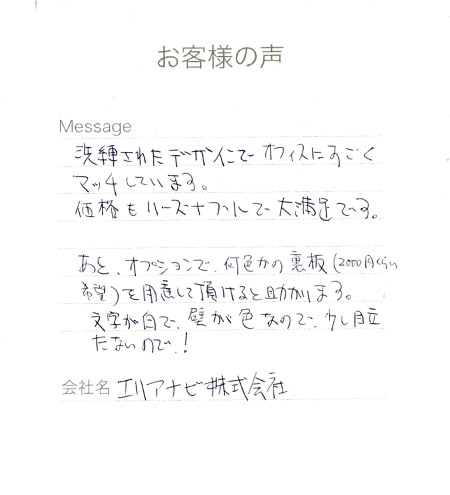 お客様の声
Message
洗練されたデザインで オフィスにすごく
マッチしています。
価格もリーズナブルで 大満足です。
あと、オプションで、何色かの裏板(2000円くらい
希望)を用意して頂けると助かります。
文字が白で、壁が色なので、少し目立
たないので!
会社名 エリアナビ株式会社